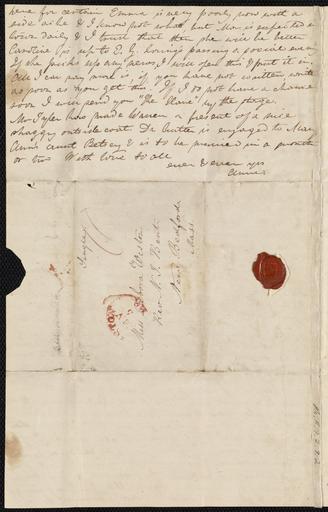 here for certain Emma is very poorly now with a
side ache & I know not what, but Mon is expected
down daily & I trust that then she will be better
Caroline has up to E. G. Loring passing a social even
If she picks up any news, I will open this & put it in,
All I can say more is if you have not written write
as soon as you get this. If I do not have a chance
soon I will send you "The Slave" by the stage.
Mr Tyler has made Warren a present of a nice
shaggy outside coat Dr Cutter is engaged to Mary
Ann's aunt Betsey & is to be married in a month
or two With love to all
ever & ever yrs
Anne
Single
Miss Debora Weston
Rev. N. T. Bent
New Bedford
Mass